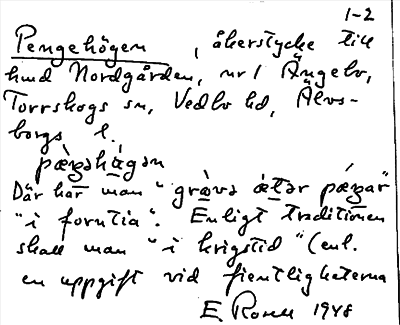 1-2
Pengehögen, åkerstycke till
hmd Nordgården, nr 1 Ängebo,
Torrskogs sn, Vedbo hd, Älvs-
borgs l.
pæŋəhǻgən
Där har man "gràva ǽtər pǽŋar
"i forntia". Enligt traditionen
skall man "i krigstid" (enl.
en uppgift vid fientligheterna
E 1948